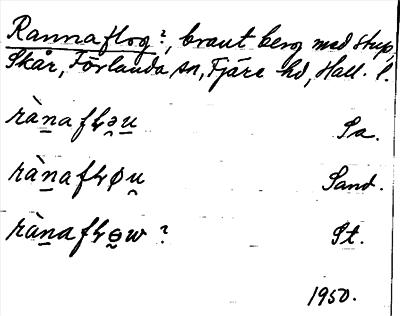 Rannaflog?, brant berg med stup,
Skår, Förlanda sn, Fjäre hd, Hall. l.
rànaflǝu Sa.
rànafløu Sand.
rànaflɵw? St.
1950.